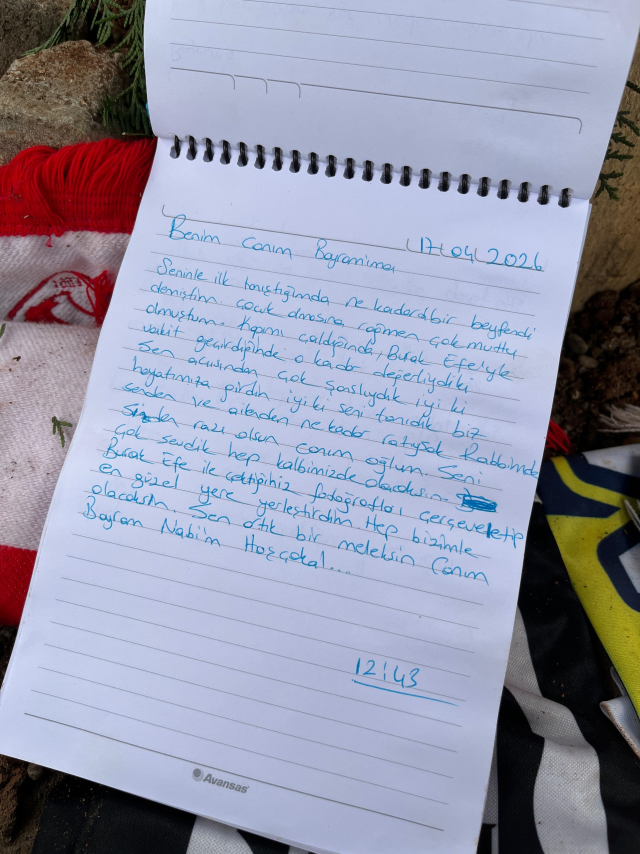 17/04/2026
Benim Canım Bayramıma,
Seninle ilk tanıştığımda ne kadar da bir beyfendi
demiştim. çocuk olmasına rağmen çok mutlu
olmuştum. Kapımı çaldığında, Burak Efe'yle
vakit geçirdiğinde o kadar değerliydiki
Sen açısından çok şanslıydık iyi ki
hayatımıza girdin iyi ki seni tanıdık biz
senden ve ailenden ne kadar razıysak Rabbimde
Sizden razı olsun canım oğlum Seni
çok sevdik hep kalbimizde olacaksın
Burak Efe ile çektiğimiz fotoğrafları çerçeveletip
en güzel yere yerleştirdim Hep bizimle
olacaksın. Sen artık bir meleksin Canım
Bayram Nabi'm Hoşçakal....
12:43
Avansas